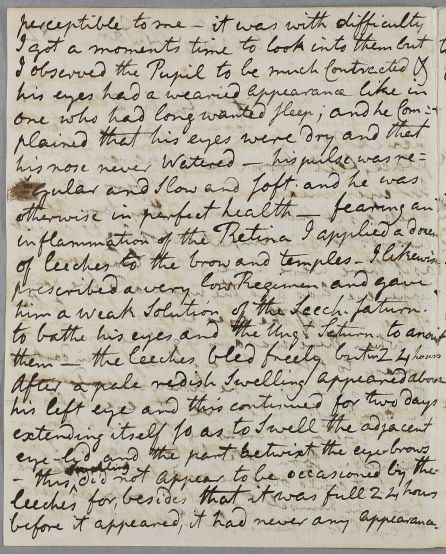 perceptible to me – it was with difficulty
I got a moments time to look into them but
I observed the Pupil to be much Contracted &
his eyes had a wearied appearance like in
one who had long wanted sleep; and he Com-
plained that his eyes were dry and that
his nose never Watered – his pulse was re-
=gular and Slow and Soft. and he was
otherwise in perfect health – fearing an
inflammation of the Retina I applied a dozen
of leeches to the brow and temples – I likewise
prescribed a very low Regimen and gave
him a weak Solution of the Sacch: Saturn.
to bathe his eyes and the Ungt Saturn. to anoint
them – the leeches bled freely but in 24 hours
After a pale redish Swelling appeared above
his left eye and this continued for two days
extending itself so as to Swell the adjacent
eye-lid and the part betwixt the eye-brows
– this Swelling did not appear to be occasioned by the
leeches for, besides that it was full 24 hours
before it appeared, it had never any appearance